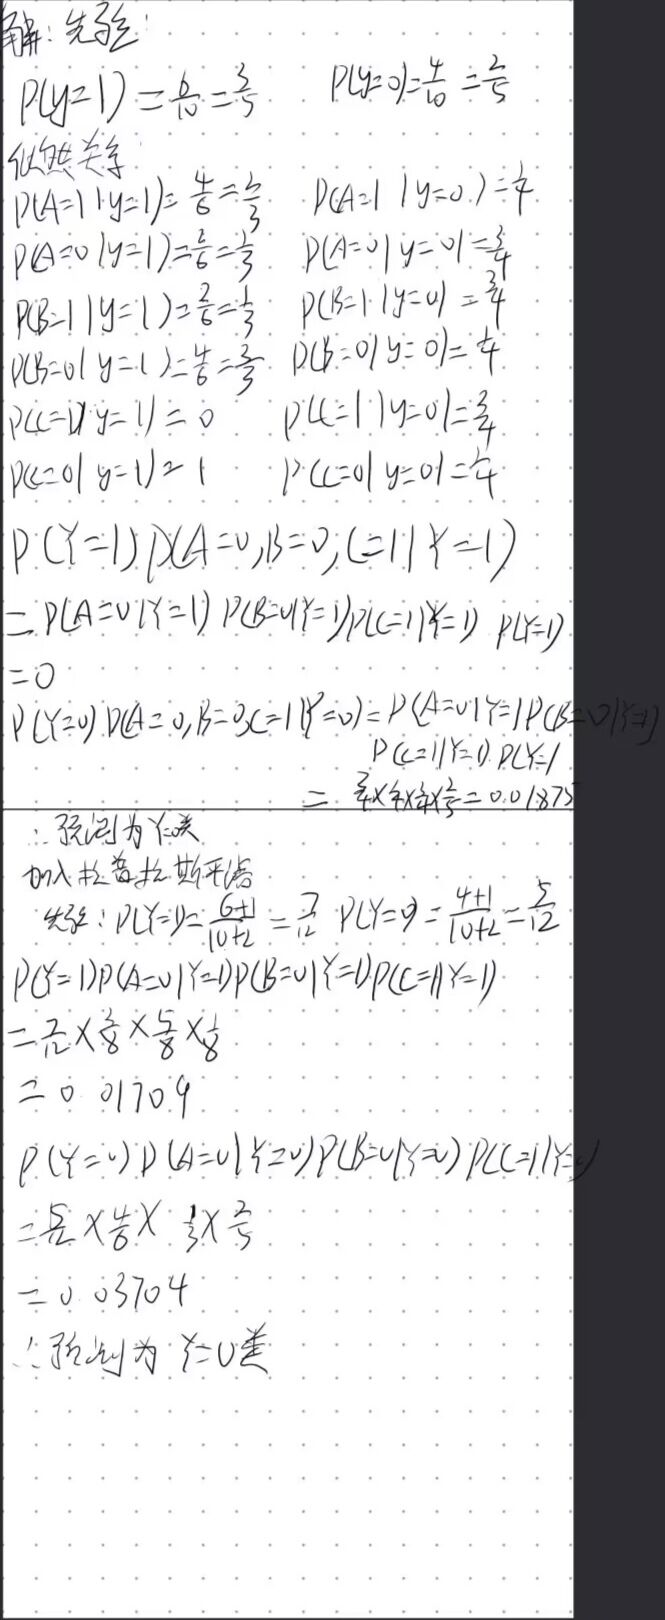 解: 先验:
P(y=1) = 6/10 = 3/5 P(y=0) = 4/10 = 2/5
似然关系
P(A=1|y=1) = 4/6 = 2/3 P(A=1|y=0) = 1/4
P(A=0|y=1) = 2/6 = 1/3 P(A=0|y=0) = 3/4
P(B=1|y=1) = 2/6 = 1/3 P(B=1|y=0) = 3/4
P(B=0|y=1) = 4/6 = 2/3 P(B=0|y=0) = 1/4
P(C=1|y=1) = 0 P(C=1|y=0) = 3/4
P(C=0|y=1) = 1 P(C=0|y=0) = 1/4
P(Y=1) P(A=0,B=0,C=1|Y=1)
= P(A=0|Y=1) P(B=0|Y=1) P(C=1|Y=1) P(Y=1)
= 0
P(Y=0) P(A=0,B=0,C=1|Y=0) = P(A=0|Y=1) P(B=0|Y=1)
P(C=1|Y=1) P(Y=1
= = 0.01875
∴ 预测为 类
加入拉普拉斯平滑
先验: P(Y=1) = 6+1/10+2 = 7/12 P(Y=0) = 4+1/10+2 = 5/12
P(Y=1)P(A=0|Y=1)P(B=0|Y=1)P(C=1|Y=1)
= 7/12 × 3/8 × 5/8 × 1/8
= 0.01709
P(Y=0) P(A=0|Y=0) P(B=0|Y=0) P(C=1|Y=0)
= 5/12 × 4/6 × 1/3 × 2/5
= 0.03704
∴ 预测为 Y=0类